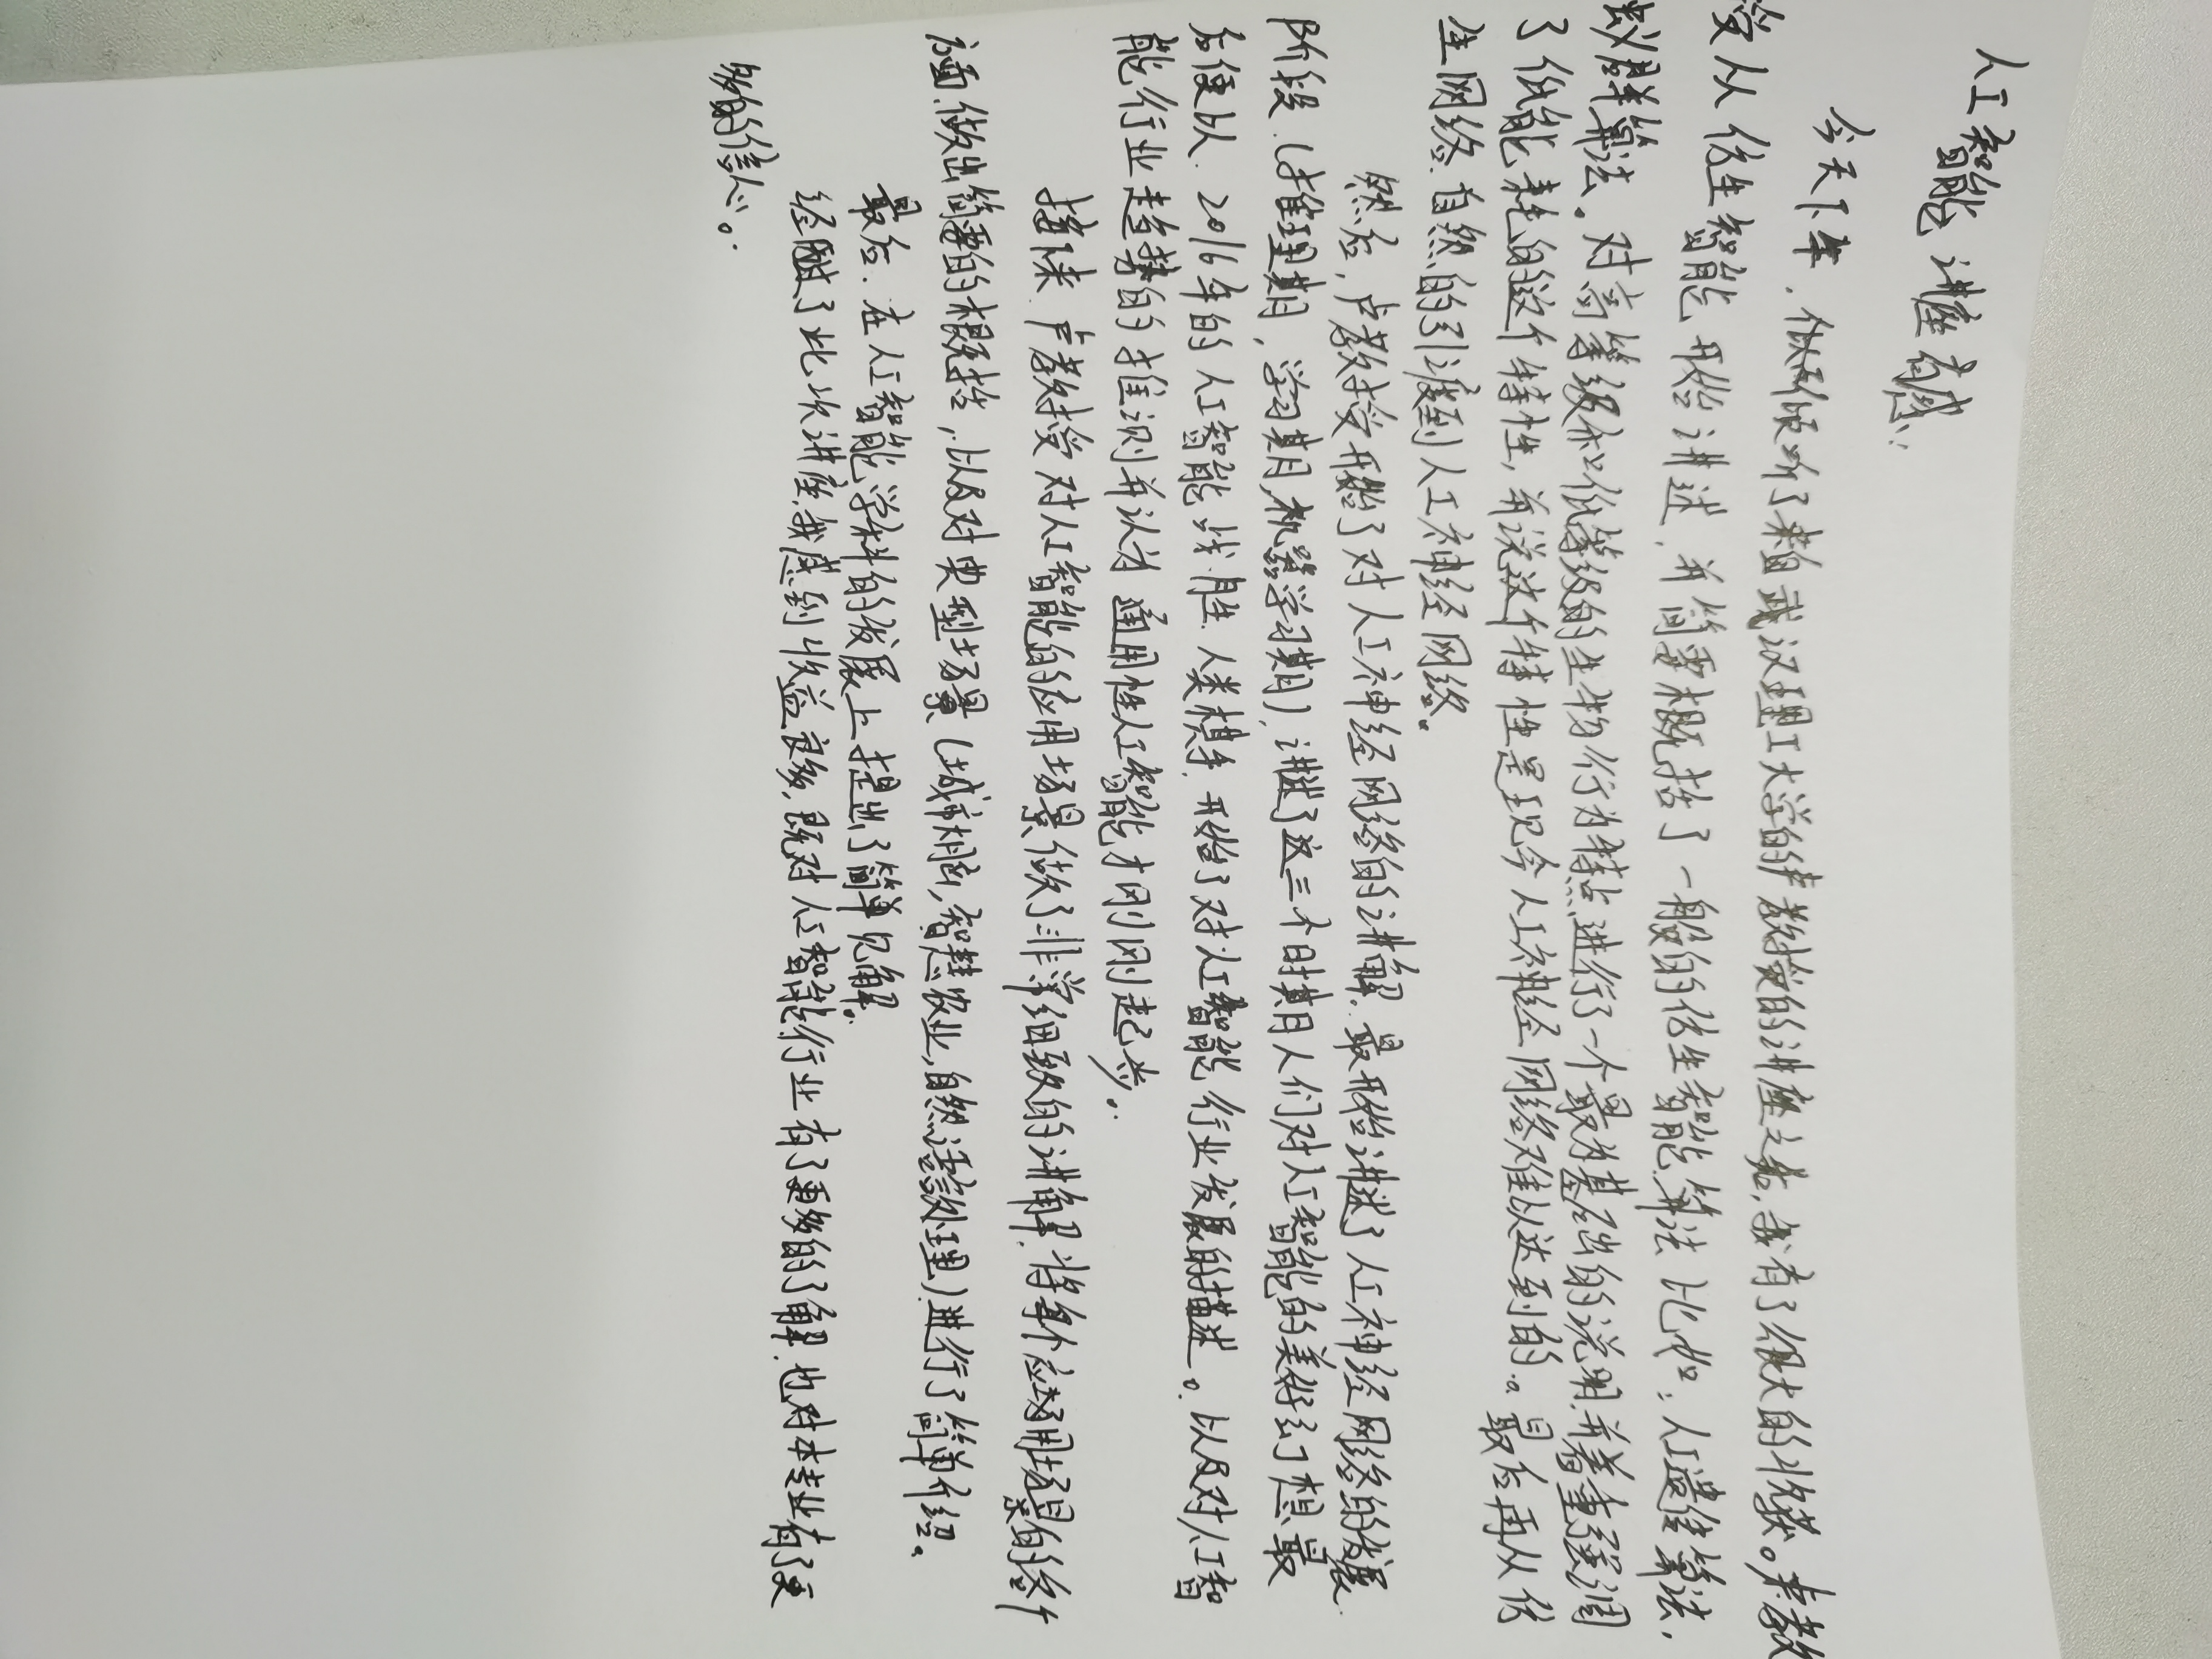 人工智能讲座有感
今天下午,似乎便听了来自武汉理工大学的卢教授的讲座之后,我有了很大的收获。卢教
授从仿生智能开始讲述,并简要概括了一般的仿生智能算法比如:人工遗传算法,
蚁群算法。对高等级和低等级的生物行为特点进行了一个最为基础的说明,并着重强调
了低能耗的这个特性,并说这个特性是现今人工神经网络难以达到的。最后再从仿
生网络自然的引渡到人工神经网络。
然后,卢教授开始了对人工神经网络的讲解.最开始讲述了人工神经网络的发展
阶段.(推理期,学习期,机器学习期),讲述了这三个时期人们对人工智能的美好幻想.最
后便以2016年的人工智能战胜人类棋手.开始了对人工智能行业发展的描述。以及对人工智
能行业趋势的推测并认为通用性人工智能才刚刚起步。
接来卢教授对人工智能的应用场景做了非常细致的讲解.将每个应用场景的各个
方面,做出简要的概括,以及对典型场景(城市大脑,智慧农业,自然语言处理)进行了简单介绍。
最后.在人工智能学科的发展上提出了简单见解。
经过了此次讲座,我感到收益良多,既对人工智能行业有了更多的了解.也对本专业有了更
多的信心。